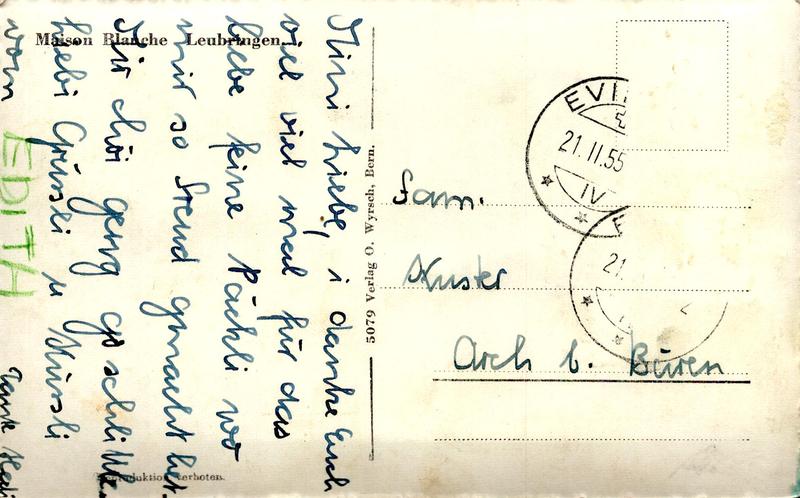 Maison Blanche Leubringen.
Mini Liebe, i danke Euch
viel viel mal für das
liebe feine Päckli wo
mir so Freud gmacht het.
Mir chöi gerng go schlittle.
Liebi Grüessli u Müssli
vom EDITH
5079 Verlag O. Wyrsch, Bern.
Reproduktion verboten.
EVI
21. II. 55
IV
Fam.
Kuster
Arch b. Büren
E
21.
2